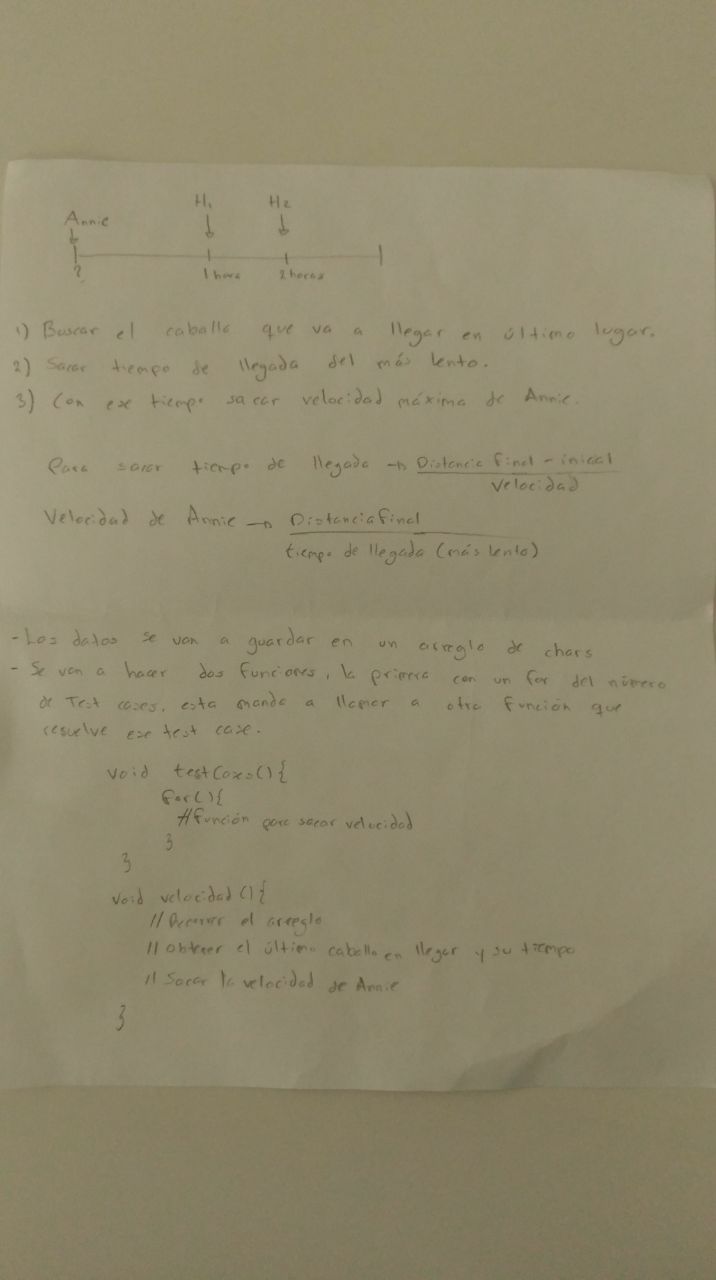 Annie H1 H2
? 1 hora 2 horas
1) Buscar el caballo que va a llegar en último lugar.
2) Sacar tiempo de llegada del más lento.
3) Con ese tiempo sacar velocidad máxima de Annie.
Para sacar tiempo de llegada → Distancia final - inicial
Velocidad
Velocidad de Annie → Distancia final
tiempo de llegada (más lento)
- Los datos se van a guardar en un arreglo de chars
- Se van a hacer dos funciones, la primera con un for del número
de Test cases, esta manda a llamar a otra función que
resuelve ese test case.
void testCases(){
for(){
//función para sacar velocidad
}
}
void velocidad(){
// el arreglo
// Obtener el último caballo en llegar y su tiempo
// Sacar la velocidad de Annie
}